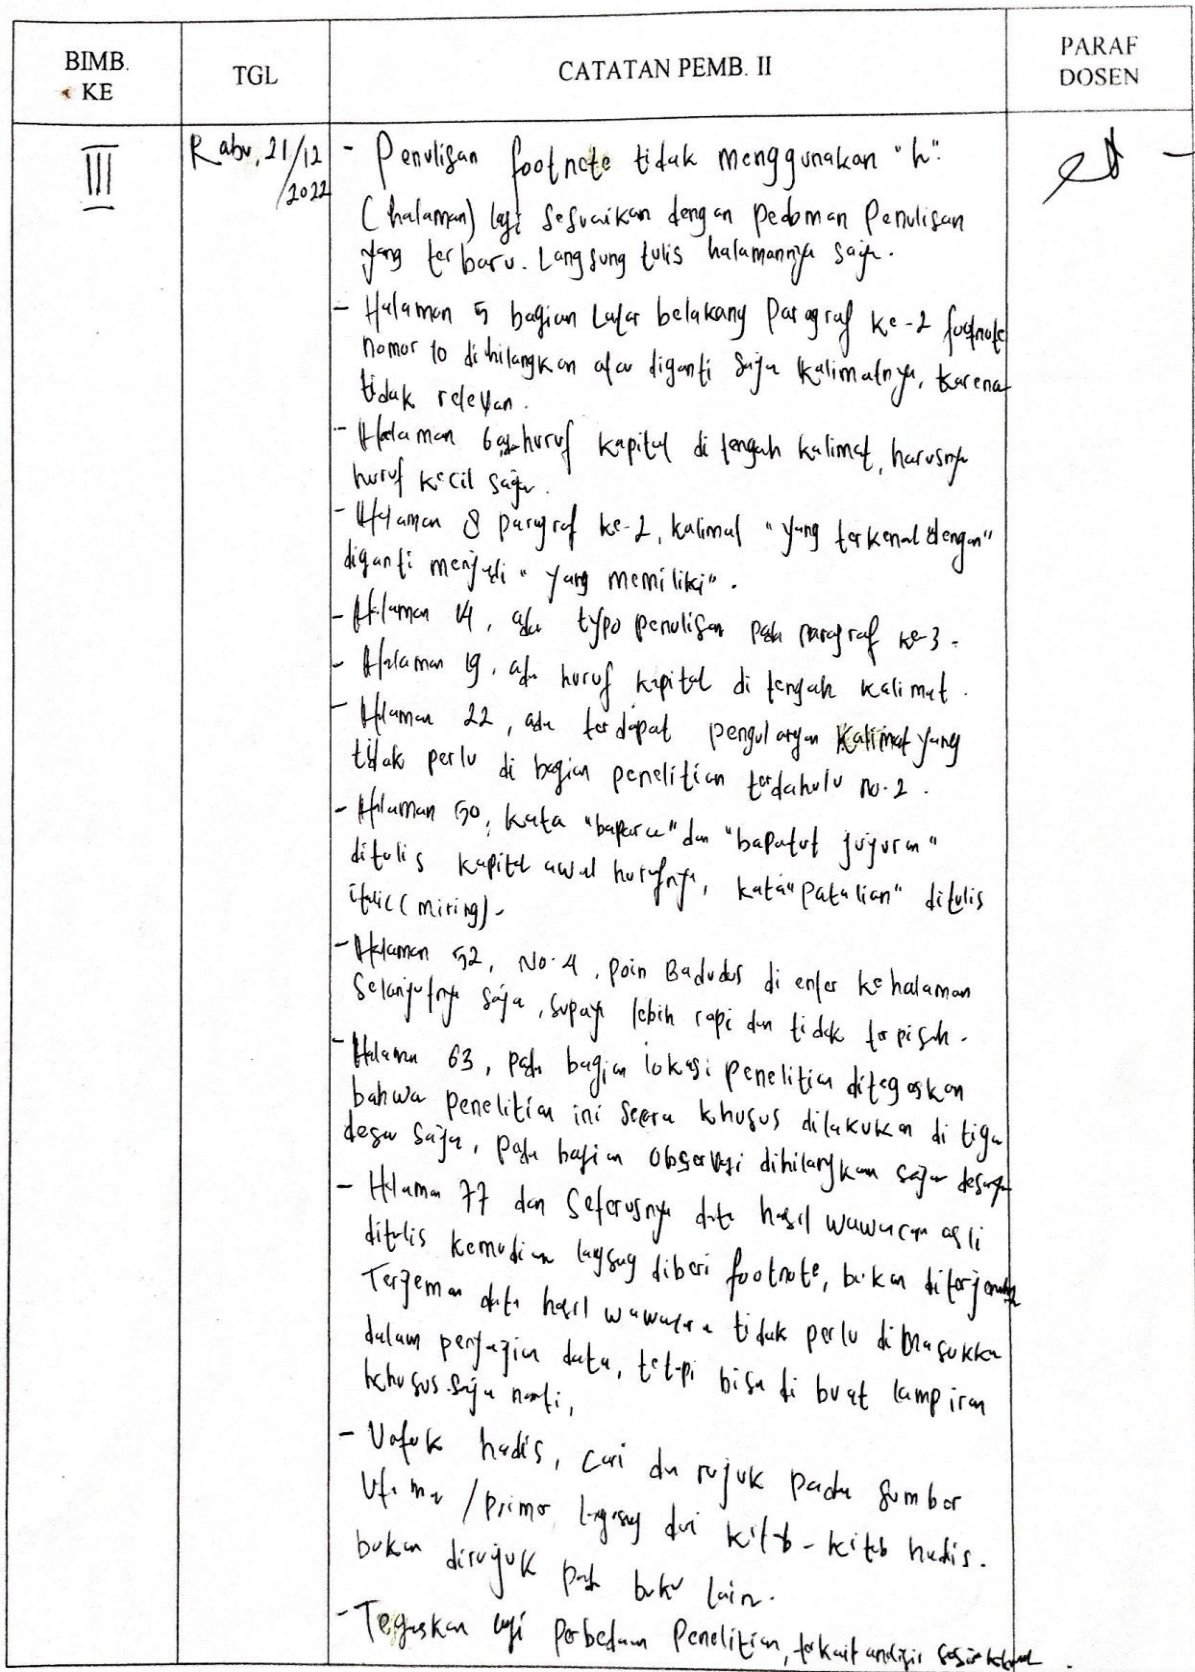 BIMB. KE
TGL
CATATAN PEMB. II
PARAF DOSEN
III
Rabu, 21/12/2022
- Penulisan footnote tidak menggunakan "h".
(halaman) lagi sesuaikan dengan pedoman Penulisan
yang terbaru. Langsung tulis halamannya saja.
- Halaman 5 bagian Latar belakang Paragraf ke-2 footnote
nomor 10 dihilangkan atau diganti saja kalimatnya, karena
tidak relevan.
- Halaman 6 ada huruf kapital di tengah kalimat, harusnya
huruf kecil saja.
- Halaman 8 paragraf ke-2, kalimat "yang terkenal dengan"
diganti menjadi "yang memiliki".
- Halaman 14, ada typo penulisan pada paragraf ke-3.
- Halaman 19, ada huruf kapital di tengah kalimat.
- Halaman 22, ada terdapat pengulangan kalimat yang
tidak perlu di bagian penelitian terdahulu no.2.
- Halaman 50, kata "baparce" dan "bapatut jujuran"
ditulis kapital awal hurufnya, kata "patalian" ditulis
italic (miring).
- Halaman 52, No.4, poin Badudus di enter ke halaman
selanjutnya saja, supaya lebih rapi dan tidak terpisah.
- Halaman 63, pada bagian lokasi penelitian ditegaskan
bahwa penelitian ini secara khusus dilakukan di tiga
desa saja, pada bagian observasi dihilangkan saja desanya
- Halaman 77 dan seterusnya data hasil wawancara asli
ditulis kemudian langsung diberi footnote, bukan diterjemah
Terjeman data hasil wawancara tidak perlu dimasukkan
dalam penyajian data, tetapi bisa di buat lampiran
khusus saja nanti,
- Untuk hadis, cari dan rujuk pada sumber
Utama /primer langsung dari kitab-kitab hadis.
bukan dirujuk pada buku lain.
- Tegaskan lagi perbedaan Penelitian, terkait analisis